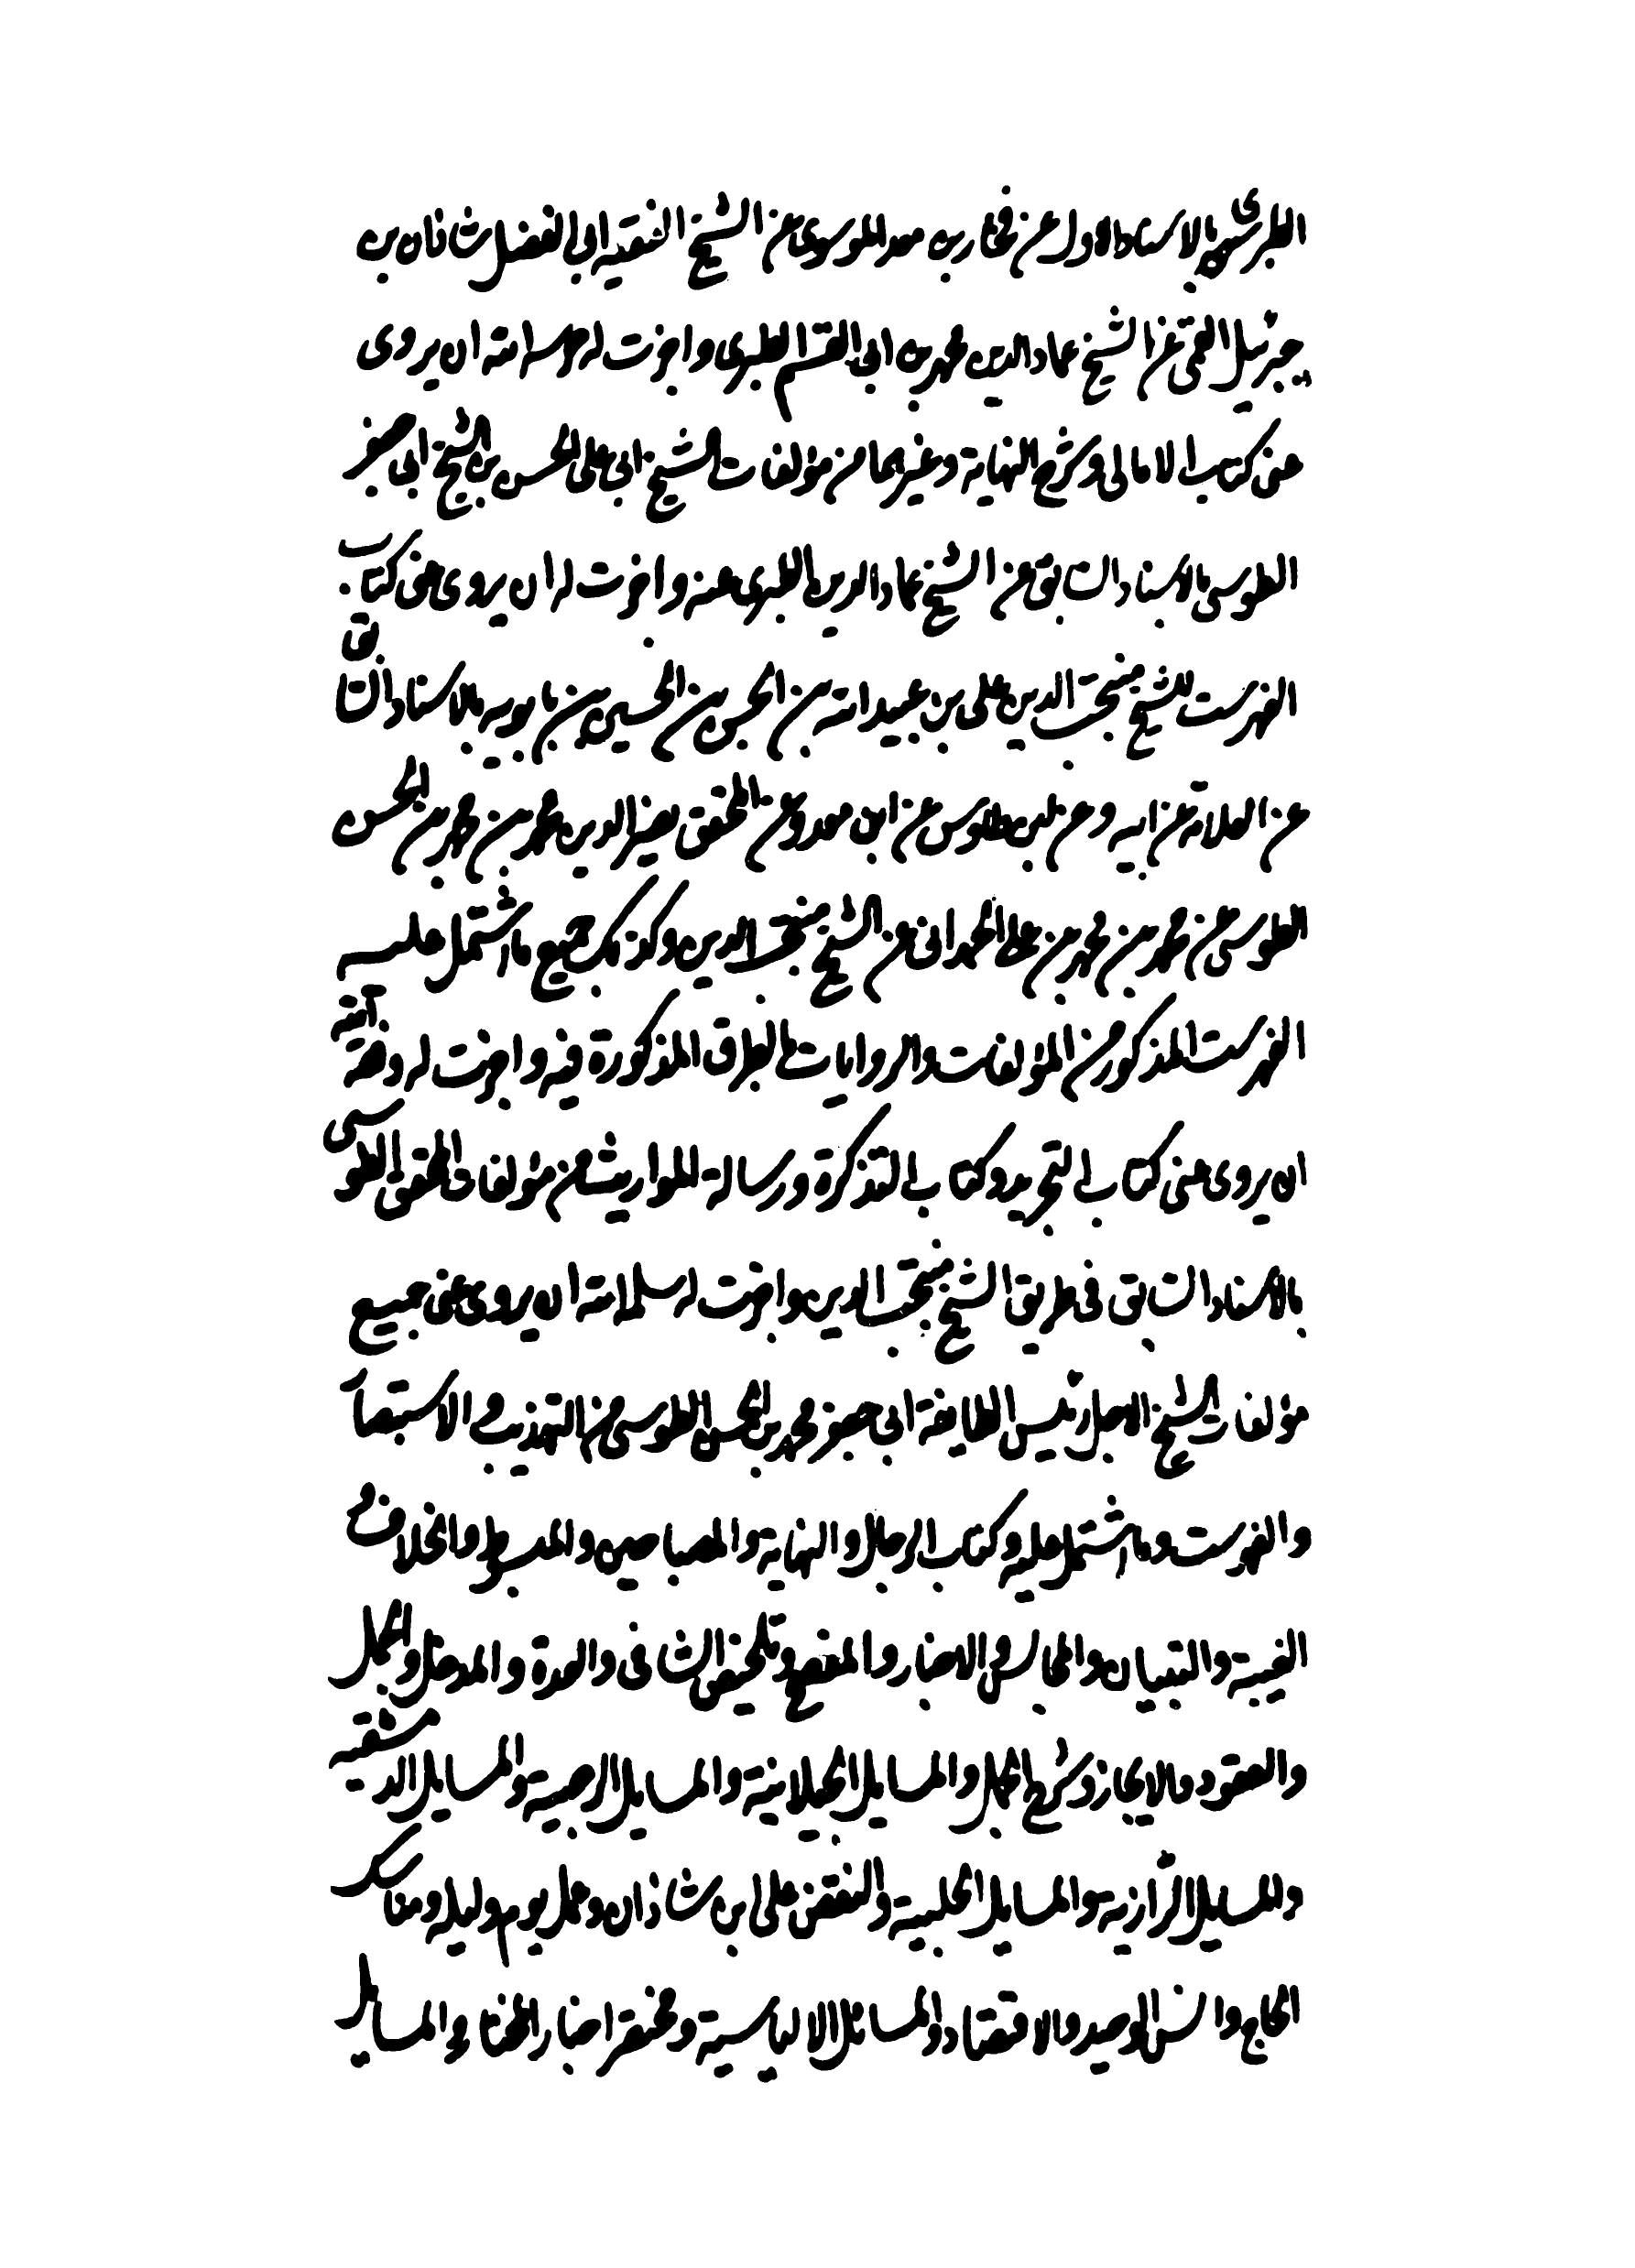 الطبرسي بالاسناد الاول عن فخار بن معد الموسوى عن الشيخ الفقيه ابى الفضل شاذان بن
جبرئيل القمى عن الشيخ عماد الدين محمد بن ابى القسم الطبرى واجزت له حرسه الله ان يروى
عنى كتاب الامالى وشرح النهاية وغيرهما من مؤلفات الشيخ ابى على الحسن بن الشيخ ابى جعفر
الطوسى بالاسناد السابق عن الشيخ عماد الدين الطبرى عنه واجزت له ان يروى عنى كتاب
الفهرست للشيخ منتجب الدين على بن عبيد الله بن الحسن بن الحسين بن بابويه بالاسناد السابق
عن العلامة عن ابيه وعن على بن طاوس عن ابن معد وعن المحقق نصير الدين محمد بن محمد بن الحسن
الطوسى عن محمد بن محمد بن على الحمدانى عن الشيخ منتجب الدين وكذلك جميع ما اشتمل عليه
الفهرست المذكور من المؤلفات والروايات بالطرق المذكورة فيه واجزت له وفقه الله
ان يروى عنى كتاب التجريد وكتاب التذكرة ورسالة المواريث من مؤلفات المحقق الطوسى
بالاسناد السابق فى طريق الشيخ منتجب الدين واجزت له سلمه الله ان يروى عنى جميع
مؤلفات الشيخ الاجل رئيس الطايفة ابى جعفر محمد بن الحسن الطوسى من التهذيب والاستبصار
والفهرست وما اشتمل عليه وكتاب الرجال والنهاية والمصباحين والمبسوط والخلاف و
الغيبة والتبيان والمجالس والاخبار والمفصح وتلخيص الشافى والعدة والمدخل والجمل
والعقود والايجاز وشرح الجمل والمسايل الجيلانية والمسايل الرجبية والمسايل الدمشقية
والمسايل الرازية والمسايل الحلبية والنقض على ابن شاذان وعمل يوم وليلة ومناسك
الحاج وانس الوحيد والاقتصاد والمسائل الالياسية ومختصر اخبار المختار والمسايل